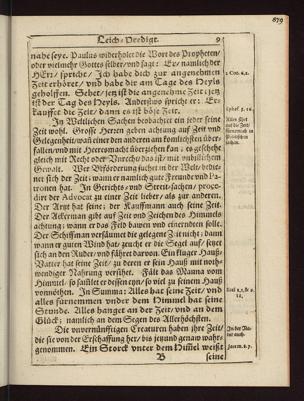 679
Leich-Predigt. 9
nahe seye. Paulus widerholet die Wort des Propheten/
oder vielmehr Gottes selber/vnd sagt: Er/ namlich der
HErr/ spricht/ Ich habe dich zur angenehmen
Zeit erhöret/ vnd habe dir am Tage des Heyls
geholffen. Sehet/ jetzt ist die angenehme Zeit: jetzt
ist der Tag des Heyls. Anderstwo spricht er: Er-
kauffet die Zeit/ dann es ist böse Zeit.
2 Cor. 6,2.
Ephes. 5. 16.
In Weltlichen Sachen beobachtet ein jeder seine
Zeit wohl. Grosse Herren geben achtung auf Zeit vnd
Gelegenheit/ wañ einer den anderen am komlichsten über-
fallen/ vnd mit Heeresmacht überziehen kan: es geschehe
gleich mit Recht oder Vnrecht/ das ist/ mit vnbillichem
Gewalt. Wer Beförderung suchet in der Welt/ bedie-
net sich der Zeit: wann er namlich gute Freunde vnd Pa-
tronen hat. In Gerichts- vnd Streit-sachen/ proce-
dirt der Advocat zu einer Zeit lieber/ als zur anderen.
Der Artzt hat seine: der Kauffmann auch seine Zeit.
Der Ackerman gibt auf Zeit vnd Zeichen des Himmels
achtung: wann er das Feld bawen vnd einerndten solle.
Der Schiffman versäumet die gelegene Zeit nicht: dann
wann er guten Wind hat/ zeucht er die Segel auf/ setzet
sich an den Ruder/ vnd fähret darvon. Ein kluger Hauß-
Vatter hat seine Zeit/ zu deren er sein Hauß mit noth-
wendiger Nahrung versihet. Fält das Manna vom
Himmel. so samlet er dessen eyn/ so viel zu seinem Hauß
vonnöhten. In Summa: Alles hat seine Zeit/ vnd
alles fürnemmen vnder dem Himmel hat seine
Stunde. Alles hanget an der Zeit/ vnd an dem
Glück; namlich an dem Segen des Allerhöchsten.
Die vnvernünfftigen Creaturen haben ihre Zeit/
die sie von der Erschaffung her/ bis jetzund genaw wahr-
genommen. Ein Storck vnter dem Himel weißt
In der Na-
tur auch.
Jerem. 8. 7.
B seine